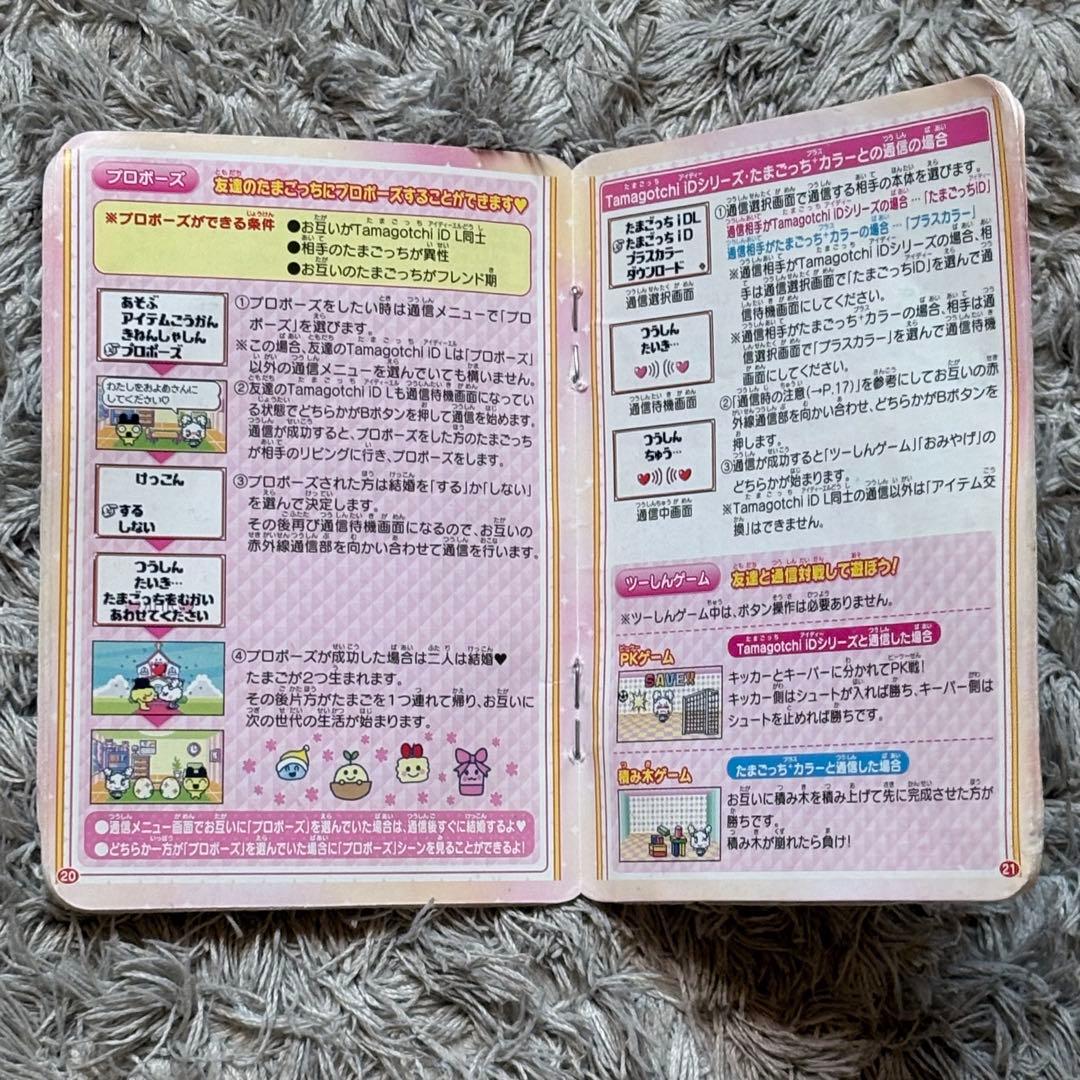 プロポーズ 友達のたまごっちにプロポーズすることができます♥
※プロポーズができる条件
●お互いがTamagotchi iD L同士
●相手のたまごっちが異性
●お互いのたまごっちがフレンド期
あそぶ
アイテムこうかん
きねんしゃしん
プロポーズ
①プロポーズをしたい時は通信メニューで「プロ
ポーズ」を選びます。
※この場合、友達のTamagotchi iD Lは「プロポーズ」
以外の通信メニューを選んでいても構いません。
わたしをおよめさんに
してください♡
②友達のTamagotchi iD Lも通信待機画面になってい
る状態でどちらかがBボタンを押して通信を始めます。
通信が成功すると、プロポーズをした方のたまごっち
が相手のリビングに行き、プロポーズをします。
けっこん
する
しない
③プロポーズされた方は結婚を「する」か「しない」
を選んで決定します。
その後再び通信待機画面になるので、お互いの
赤外線通信部を向かい合わせて通信を行います。
つうしん
たいき…
たまごっちをむかい
あわせてください
④プロポーズが成功した場合は二人は結婚♥
たまごが2つ生まれます。
その後片方がたまごを1つ連れて帰り、お互いに
次の世代の生活が始まります。
●通信メニュー画面でお互いに「プロポーズ」を選んでいた場合は、通信後すぐに結婚するよ♥
●どちらか一方が「プロポーズ」を選んでいた場合に「プロポーズ」シーンを見ることができるよ!
20
Tamagotchi iDシリーズ・たまごっち+カラーとの通信の場合
たまごっち iDL
たまごっち iD
プラスカラー
ダウンロード
通信選択画面
①通信選択画面で通信する相手の本体を選びます。
通信相手がTamagotchi iDシリーズの場合…「たまごっちiD」
通信相手がたまごっち+カラーの場合…「プラスカラー」
※通信相手がTamagotchi iDシリーズの場合、相
手は通信選択画面で「たまごっちiD」を選んで通
信待機画面にしてください。
※通信相手がたまごっち+カラーの場合、相手は通
信選択画面で「プラスカラー」を選んで通信待機
画面にしてください。
つうしん
たいき…
通信待機画面
②「通信時の注意(→P.17)」を参考にしてお互いの赤
外線通信部を向かい合わせ、どちらかがBボタンを
押します。
つうしん
ちゅう…
通信中画面
③通信が成功すると「ツーしんゲーム」「おみやげ」の
どちらかが始まります。
※Tamagotchi iD L同士の通信以外は「アイテム交
換」はできません。
ツーしんゲーム 友達と通信対戦して遊ぼう!
※ツーしんゲーム中は、ボタン操作は必要ありません。
PKゲーム
Tamagotchi iDシリーズと通信した場合
SAVE!!
キッカーとキーパーに分かれてPK戦!
キッカー側はシュートが入れば勝ち、キーパー側は
シュートを止めれば勝ちです。
積み木ゲーム
たまごっち+カラーと通信した場合
お互いに積み木を積み上げて先に完成させた方が
勝ちです。
積み木が崩れたら負け!
21